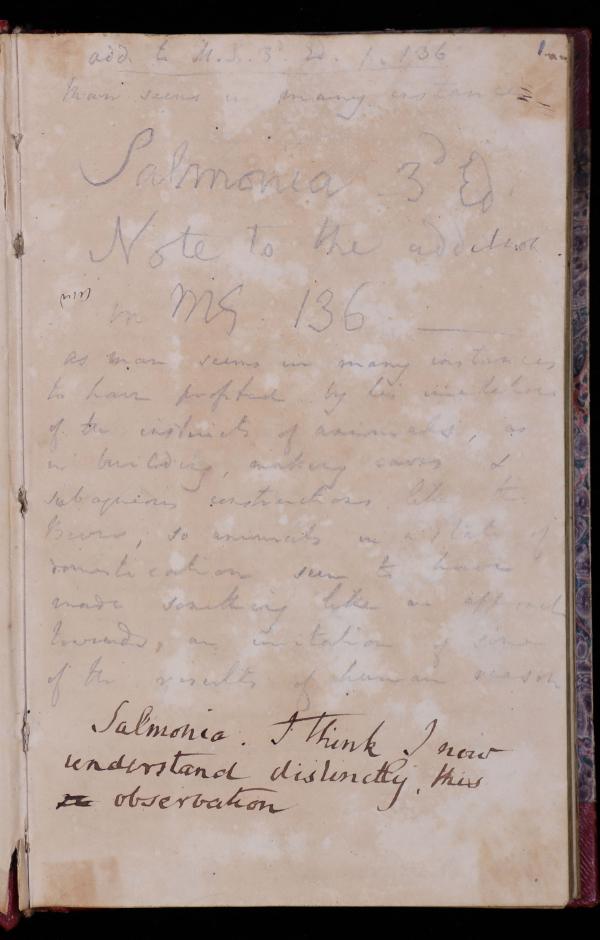 add to M.S. 3d Ed. p. 136
Man seems in many instances
Salmonia 3d Ed
Note to the addition
in MS. 136
as man seems in many instances
to have profited by his imitations
of the instincts of animals, as
in building, making caves &
subaqueous constructions like the
Beaver, so animals in a state of
domestication seem to have
made something like an approach
towards, an imitation of some
of the results of human reason
Salmonia. I think I now
understand distinctly, this
observation